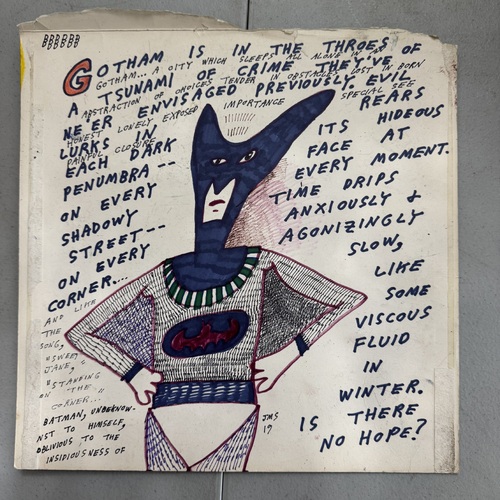 BBBBBB
GOTHAM IS IN THE THROES OF
GOTHAM... A CITY WHICH SLEEPS ALL ALONE IN
A TSUNAMI OF CRIME THEY'VE
ABSTRACTION OF CHOICES TENDER IN OBSTACLES LOST IN BORN
NE'ER ENVISAGED PREVIOUSLY EVIL
HONEST LONELY EXPOSED IMPORTANCE SPECIAL SEG
LURKS IN
PAINFUL CLOSURE
EACH DARK
PENUMBRA--
ON EVERY
SHADOWY
STREET--
ON EVERY
CORNER...
AND LIKE
THE
SONG,
"SWEET
JANE,"
"STANDING
ON THE
CORNER..."
BATMAN, UNBEKNOW-
NST TO HIMSELF,
OBLIVIOUS TO THE
INSIDIOUSNESS OF
REARS
ITS HIDEOUS
FACE AT
EVERY MOMENT.
TIME DRIPS
ANXIOUSLY &
AGONIZINGLY
SLOW,
LIKE
SOME
VISCOUS
FLUID
IN
WINTER.
IS THERE
NO HOPE?
JMS
19